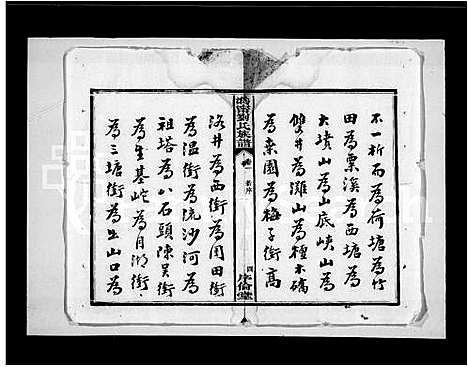 不一析而為荷塘為竹
田為粟溪為西塘為
大墳山為山底峽山為
雙井為灘山為種木礄
為東園為梅子街高
劉氏族譜
新序
四
序倫堂
洛井為西街為圓田街
為温街為流沙河為
祖塔為八石頭陳吴街
為生基岭為月湖街
為三塘街為出山口為